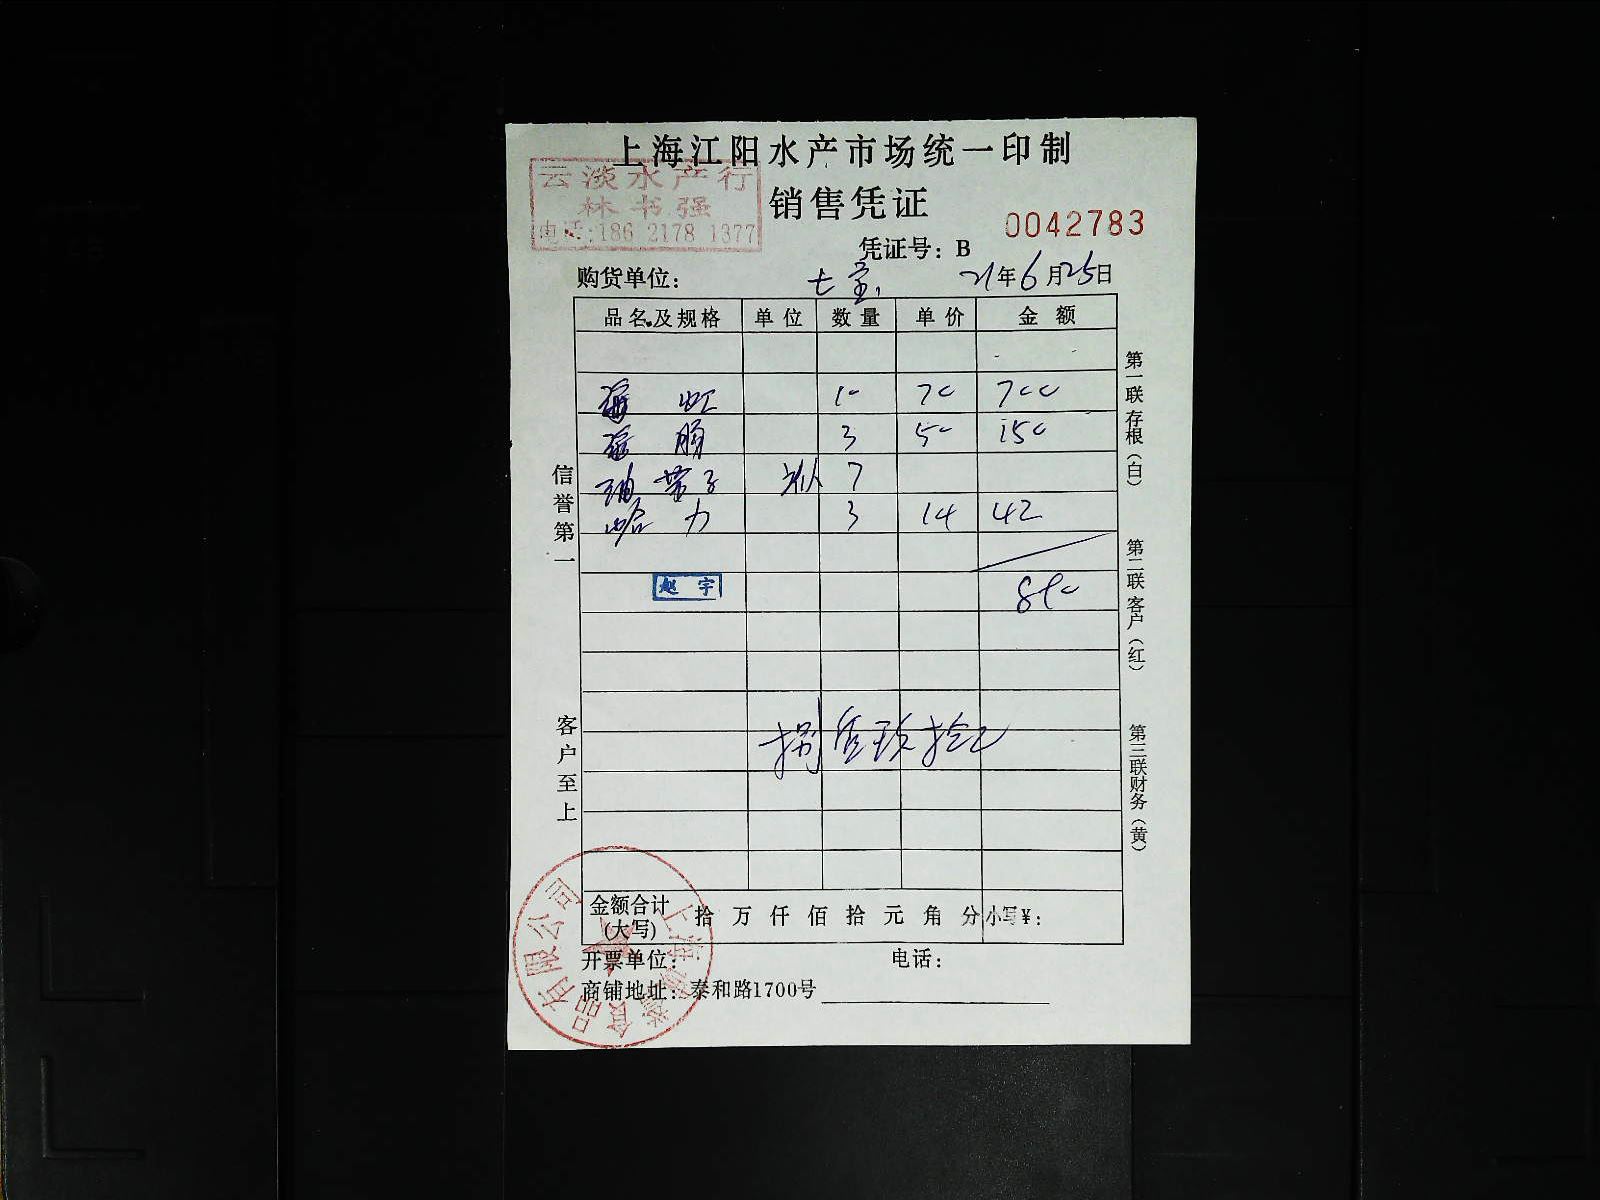 上海江阳水产市场统一印制
云淡水产行
林书强
电话:186 2178 1377
销售凭证
0042783
凭证号：B
购货单位： 七宝 21年6月25日
品名及规格 单位 数量 单价 金额
海虹 10 70 700
3 50 150
带子 7
哈力 3 14 42
赵宇
890
捌佰玖拾元
信誉第一
客户至上
第一联存根（白）
第二联客户（红）
第三联财务（黄）
金额合计(大写) 拾万仟佰拾元角分 小写¥：
开票单位： 电话：
商铺地址：泰和路1700号
食品有限公司